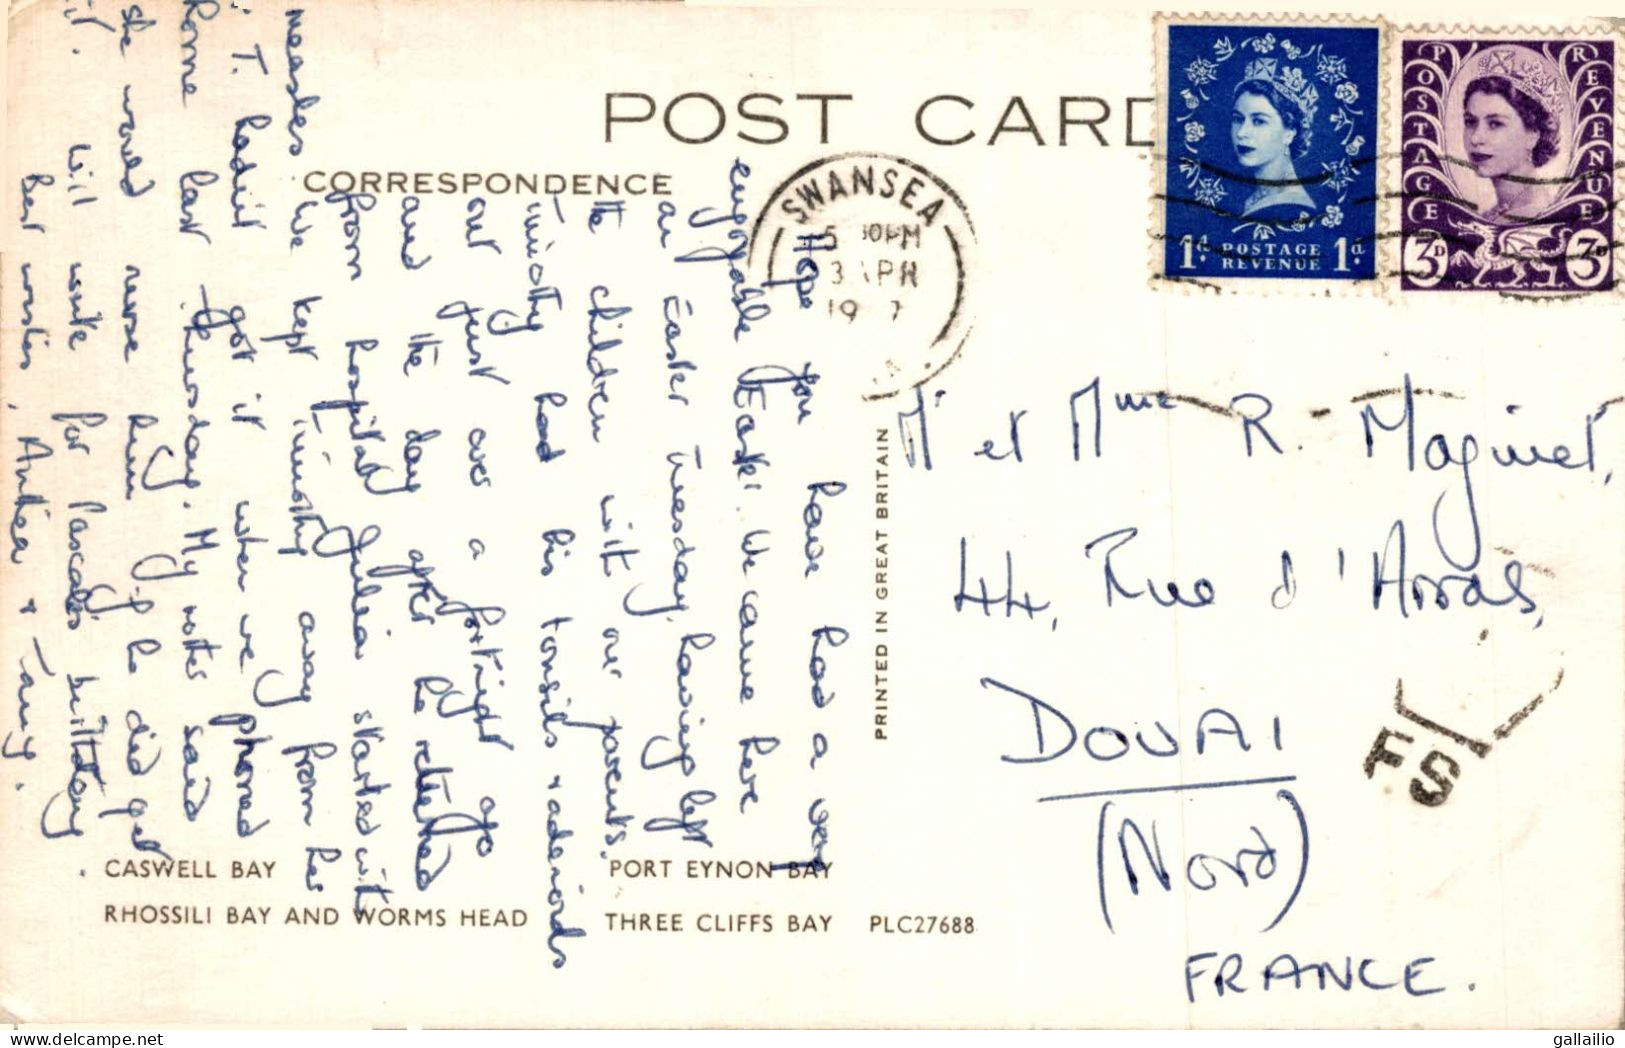 POST CARD
CORRESPONDENCE
Hope you have had a very
enjoyable Easter. We came here
on Easter Tuesday, having left
the children with our parents.
Timothy had his tonsils & adenoids
out just over a fortnight ago
and the day after he returned
from hospital Julia started with
measles. We kept Timothy away from her
T. hadn't got it when we phoned
home last Thursday. My mother said
she would nurse him if he did get
it. Will write for Pascale's birthday.
Best wishes, & Tony.
PRINTED IN GREAT BRITAIN
CASWELL BAY
PORT EYNON BAY
RHOSSILI BAY AND WORMS HEAD
THREE CLIFFS BAY PLC27688
SWANSEA
PM
3 APR
19 7
1d POSTAGE REVENUE 1d
POSTAGE REVENUE
3D 3D
Mr et Mme R. Maginet,
44, Rue d'Arras,
DOUAI
(Nord)
FRANCE.
FS
gallailio
www.delcampe.net